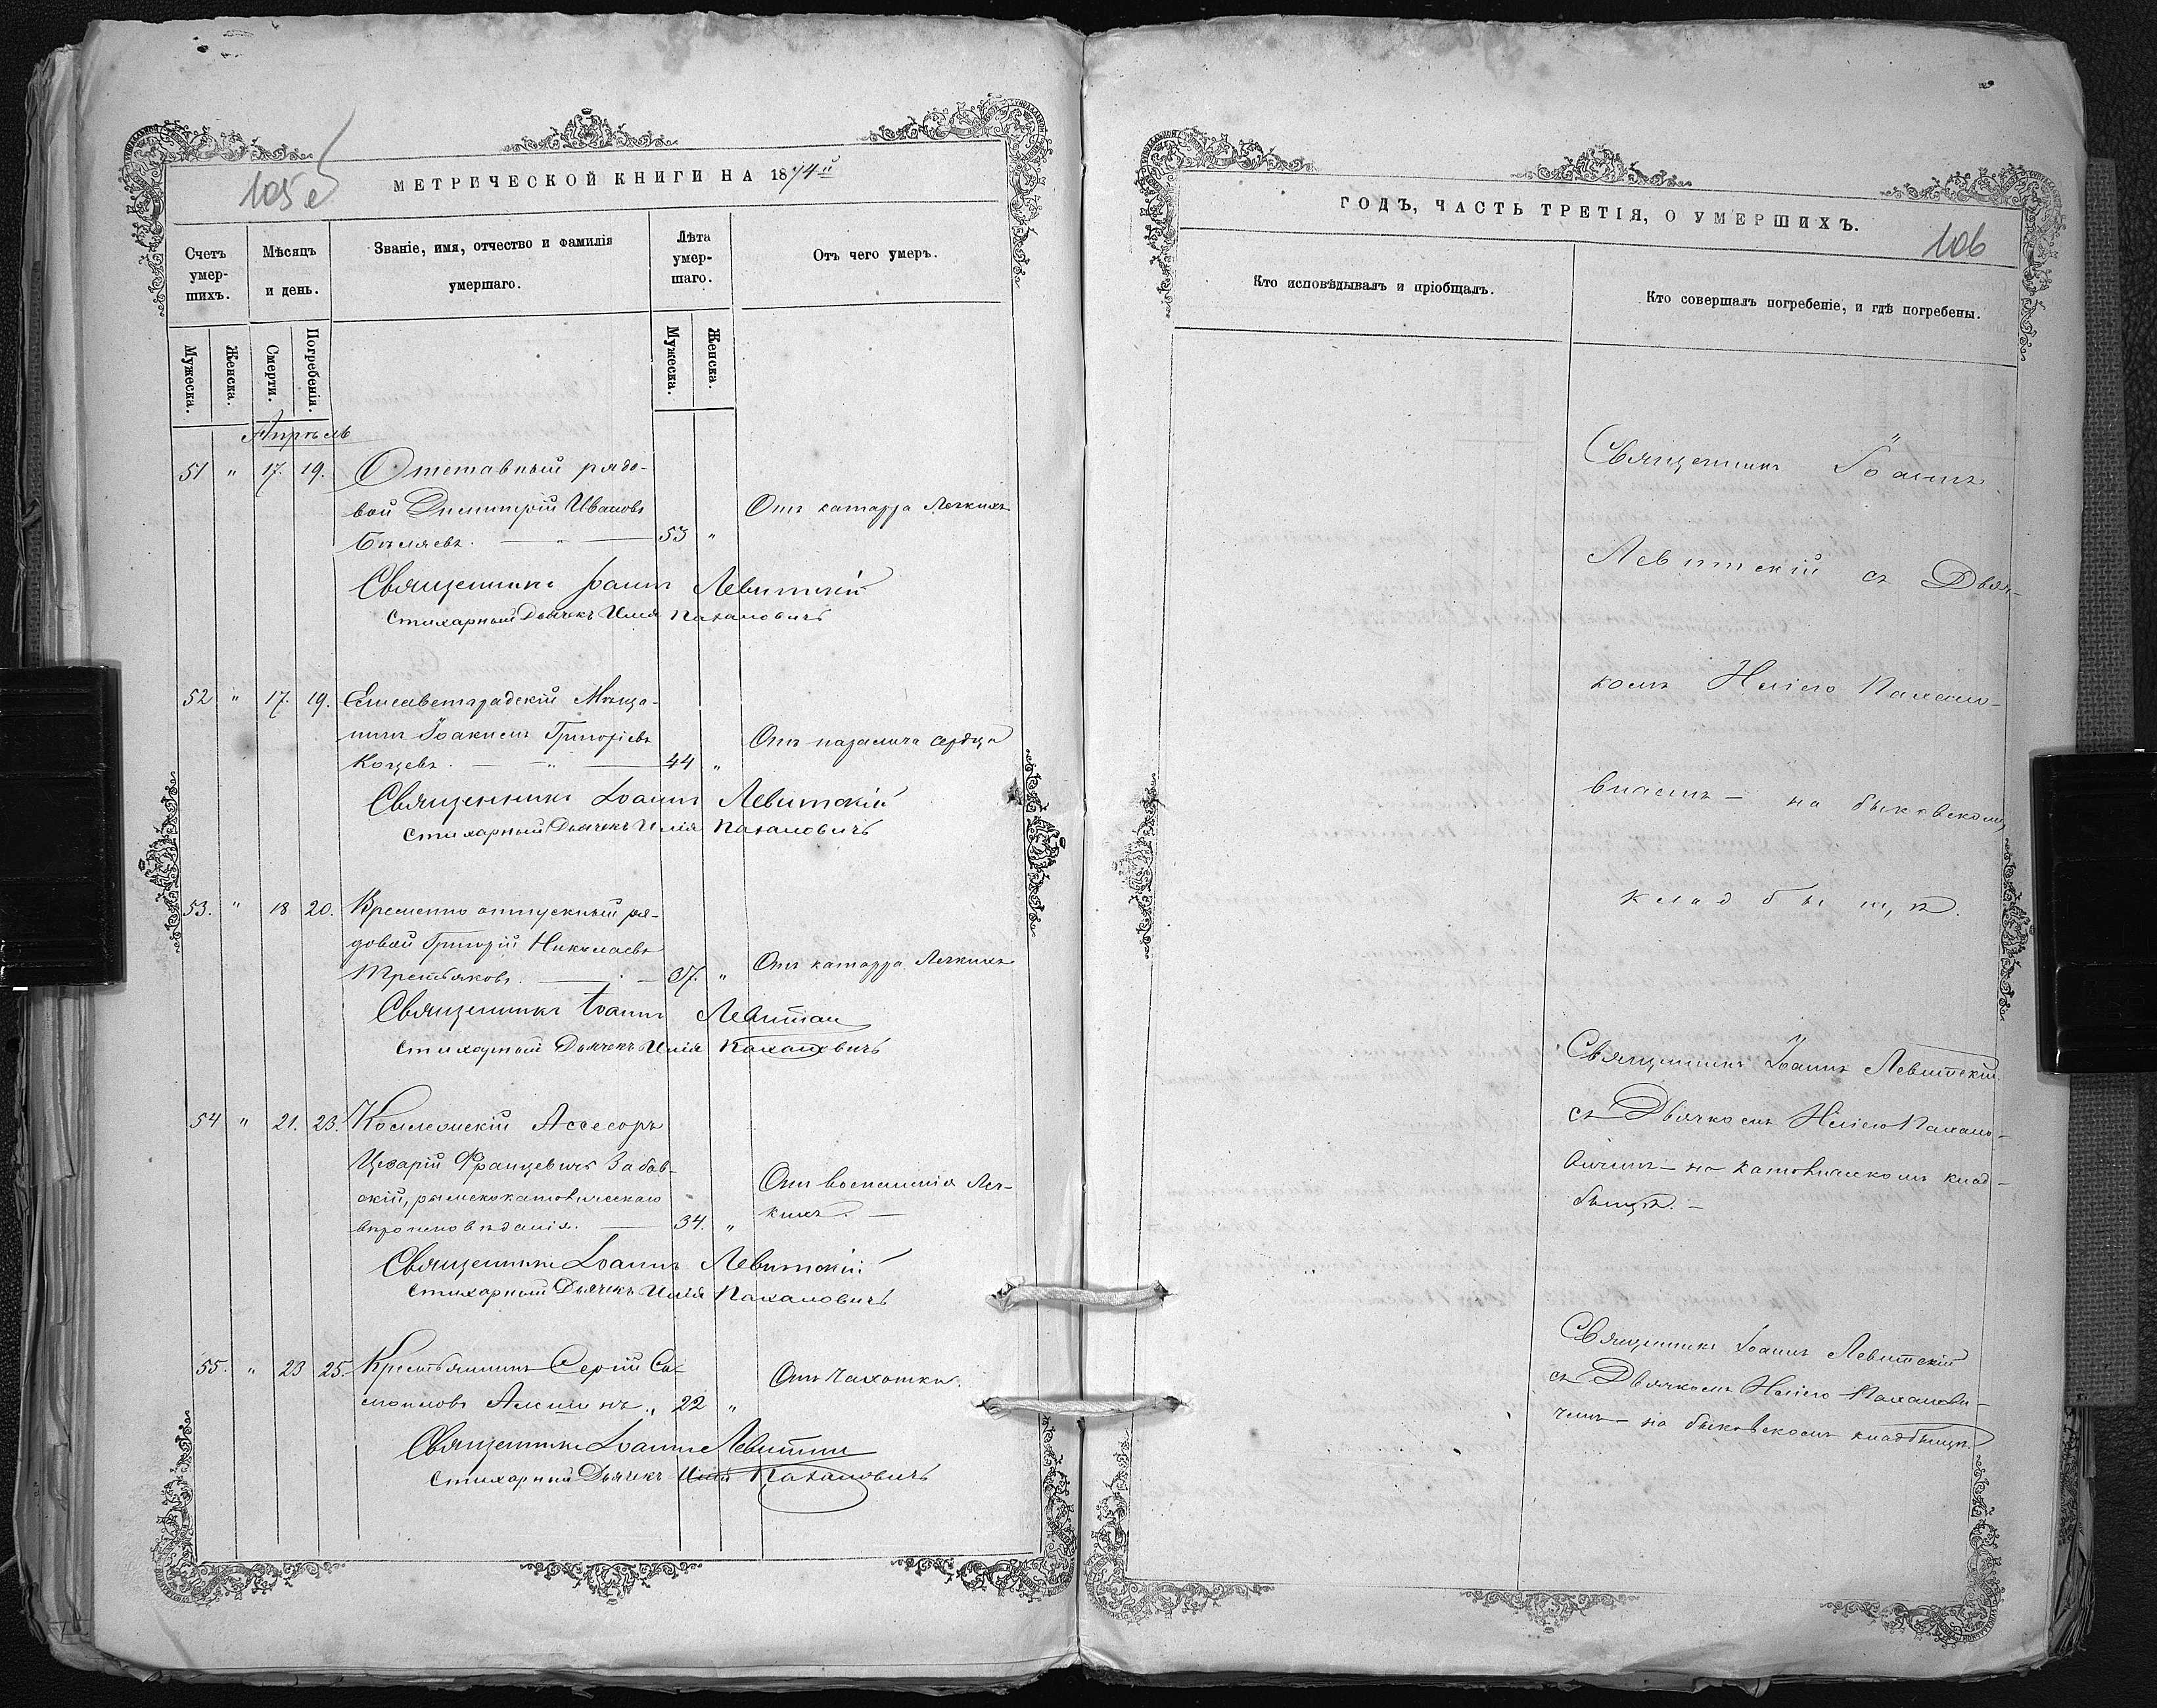 105 е
МЕТРИЧЕСКОЙ КНИГИ НА 1874й
Счетъ умер-шихъ.
Мѣсяцъ и день.
Званіе, имя, отчество и фамилія умершаго.
Лѣта умер-шаго.
Отъ чего умеръ.
Мужеска.
Женска.
Смерти.
Погребенія.
Мужеска.
Женска.
Апрѣль
51 " 17. 19. Отставный рядо-
вой Димитрій Ивановъ
Бѣляевъ. — " — 53 "
Отъ катарра Легкихъ
Священникъ Іоаннъ Левитскій
Стихарный Дьячекъ Илія Пахаловичъ
52 " 17. 19. Елисаветградскій Мѣща-
нинъ Іоакимъ Григоріевъ
Коцевъ. — " — 44 "
Отъ паралича сердца
Священникъ Іоаннъ Левитскій
Стихарный Дьячекъ Илія Пахаловичъ
53. " 18 20. Временно отпускный ря-
довой Григорій Николаевъ
Третьяковъ. — 37. "
Отъ катарра Легкихъ
Священникъ Іоаннъ
Стихарный Дьячекъ Илія Пахаловичъ
54 " 21. 23. Коллежскій Ассесоръ
Цезарій Францевичъ Забав-
скій, римскокатолическаго
вѣроисповѣданія. — 34. "
Отъ воспаленія Лег-
кихъ. —
Священникъ Іоаннъ Левитскій
Стихарный Дьячекъ Илія Пахаловичъ
55. " 23 25. Крестьянинъ Сергій Са-
мойловъ 22 "
Отъ Чахотки.
Священникъ Іоаннъ
Стихарный Дьячекъ Илія Пахаловичъ
ГОДЪ, ЧАСТЬ ТРЕТІЯ, О УМЕРШИХЪ.
106
Кто исповѣдывалъ и пріобщалъ.
Кто совершалъ погребеніе, и гдѣ погребены.
Священникъ Іоаннъ
Левитскій съ Дьяч-
комъ Иліею Пахало-
вичемъ — на быковскомъ
кладбищѣ.
Священникъ Іоаннъ Левитскій
съ Дьячкомъ Иліею Пахало-
вичемъ — на католическомъ клад-
бищѣ. —
Священникъ Іоаннъ Левитскій
съ Дьячкомъ Иліею Пахалови-
чемъ — на быковскомъ кладбищѣ.